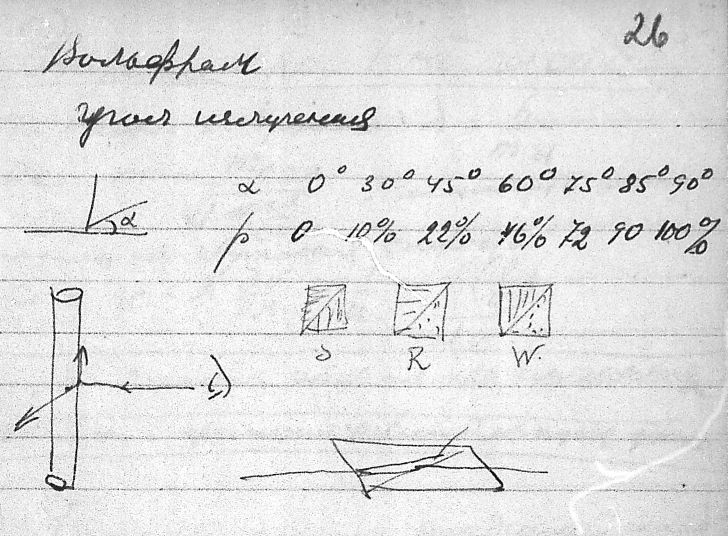 26
Вольфрам
угол излучения
α 0° 30° 45° 60° 75° 85° 90°
α
p 0 10% 22% 46% 72 90 100%
S R W.